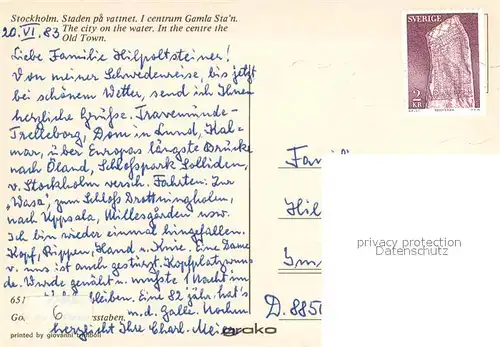 Stockholm. Staden på vattnet. I centrum Gamla Sta'n.
The city on the water. In the centre the
Old Town.
20.VI.83
Liebe Familie Hilpoltsteiner!
Von meiner Schwedenreise, bis jetzt
bei schönem Wetter, send ich Ihnen
herzliche Grüße. Travemünde-
Trelleborg, Dom in Lund, Kal-
mar, über Europas längste Brücke
nach Öland, Schloßpark Solliden,
v. Stockholm versch. Fahrten: Zur
"Wasa", zum Schloß Drottningholm,
nach Uppsala, Millesgården usw.
Ich bin wieder einmal hingefallen.
Kopf, Rippen, Hand u. Knie. Eine Dame
v. uns ist auch gestürzt. Kopfplatzwun-
de. Wurde genäht u. mußte 1 Nacht im
bleiben. Eine 82 jähr. hat's
m. d. Galle. Nochm
herzlichst Ihre Charl.
651
6
printed by giovanni
grako
SVERIGE
2
KR
Famili
Hil
D. 8850
privacy protection
watermark